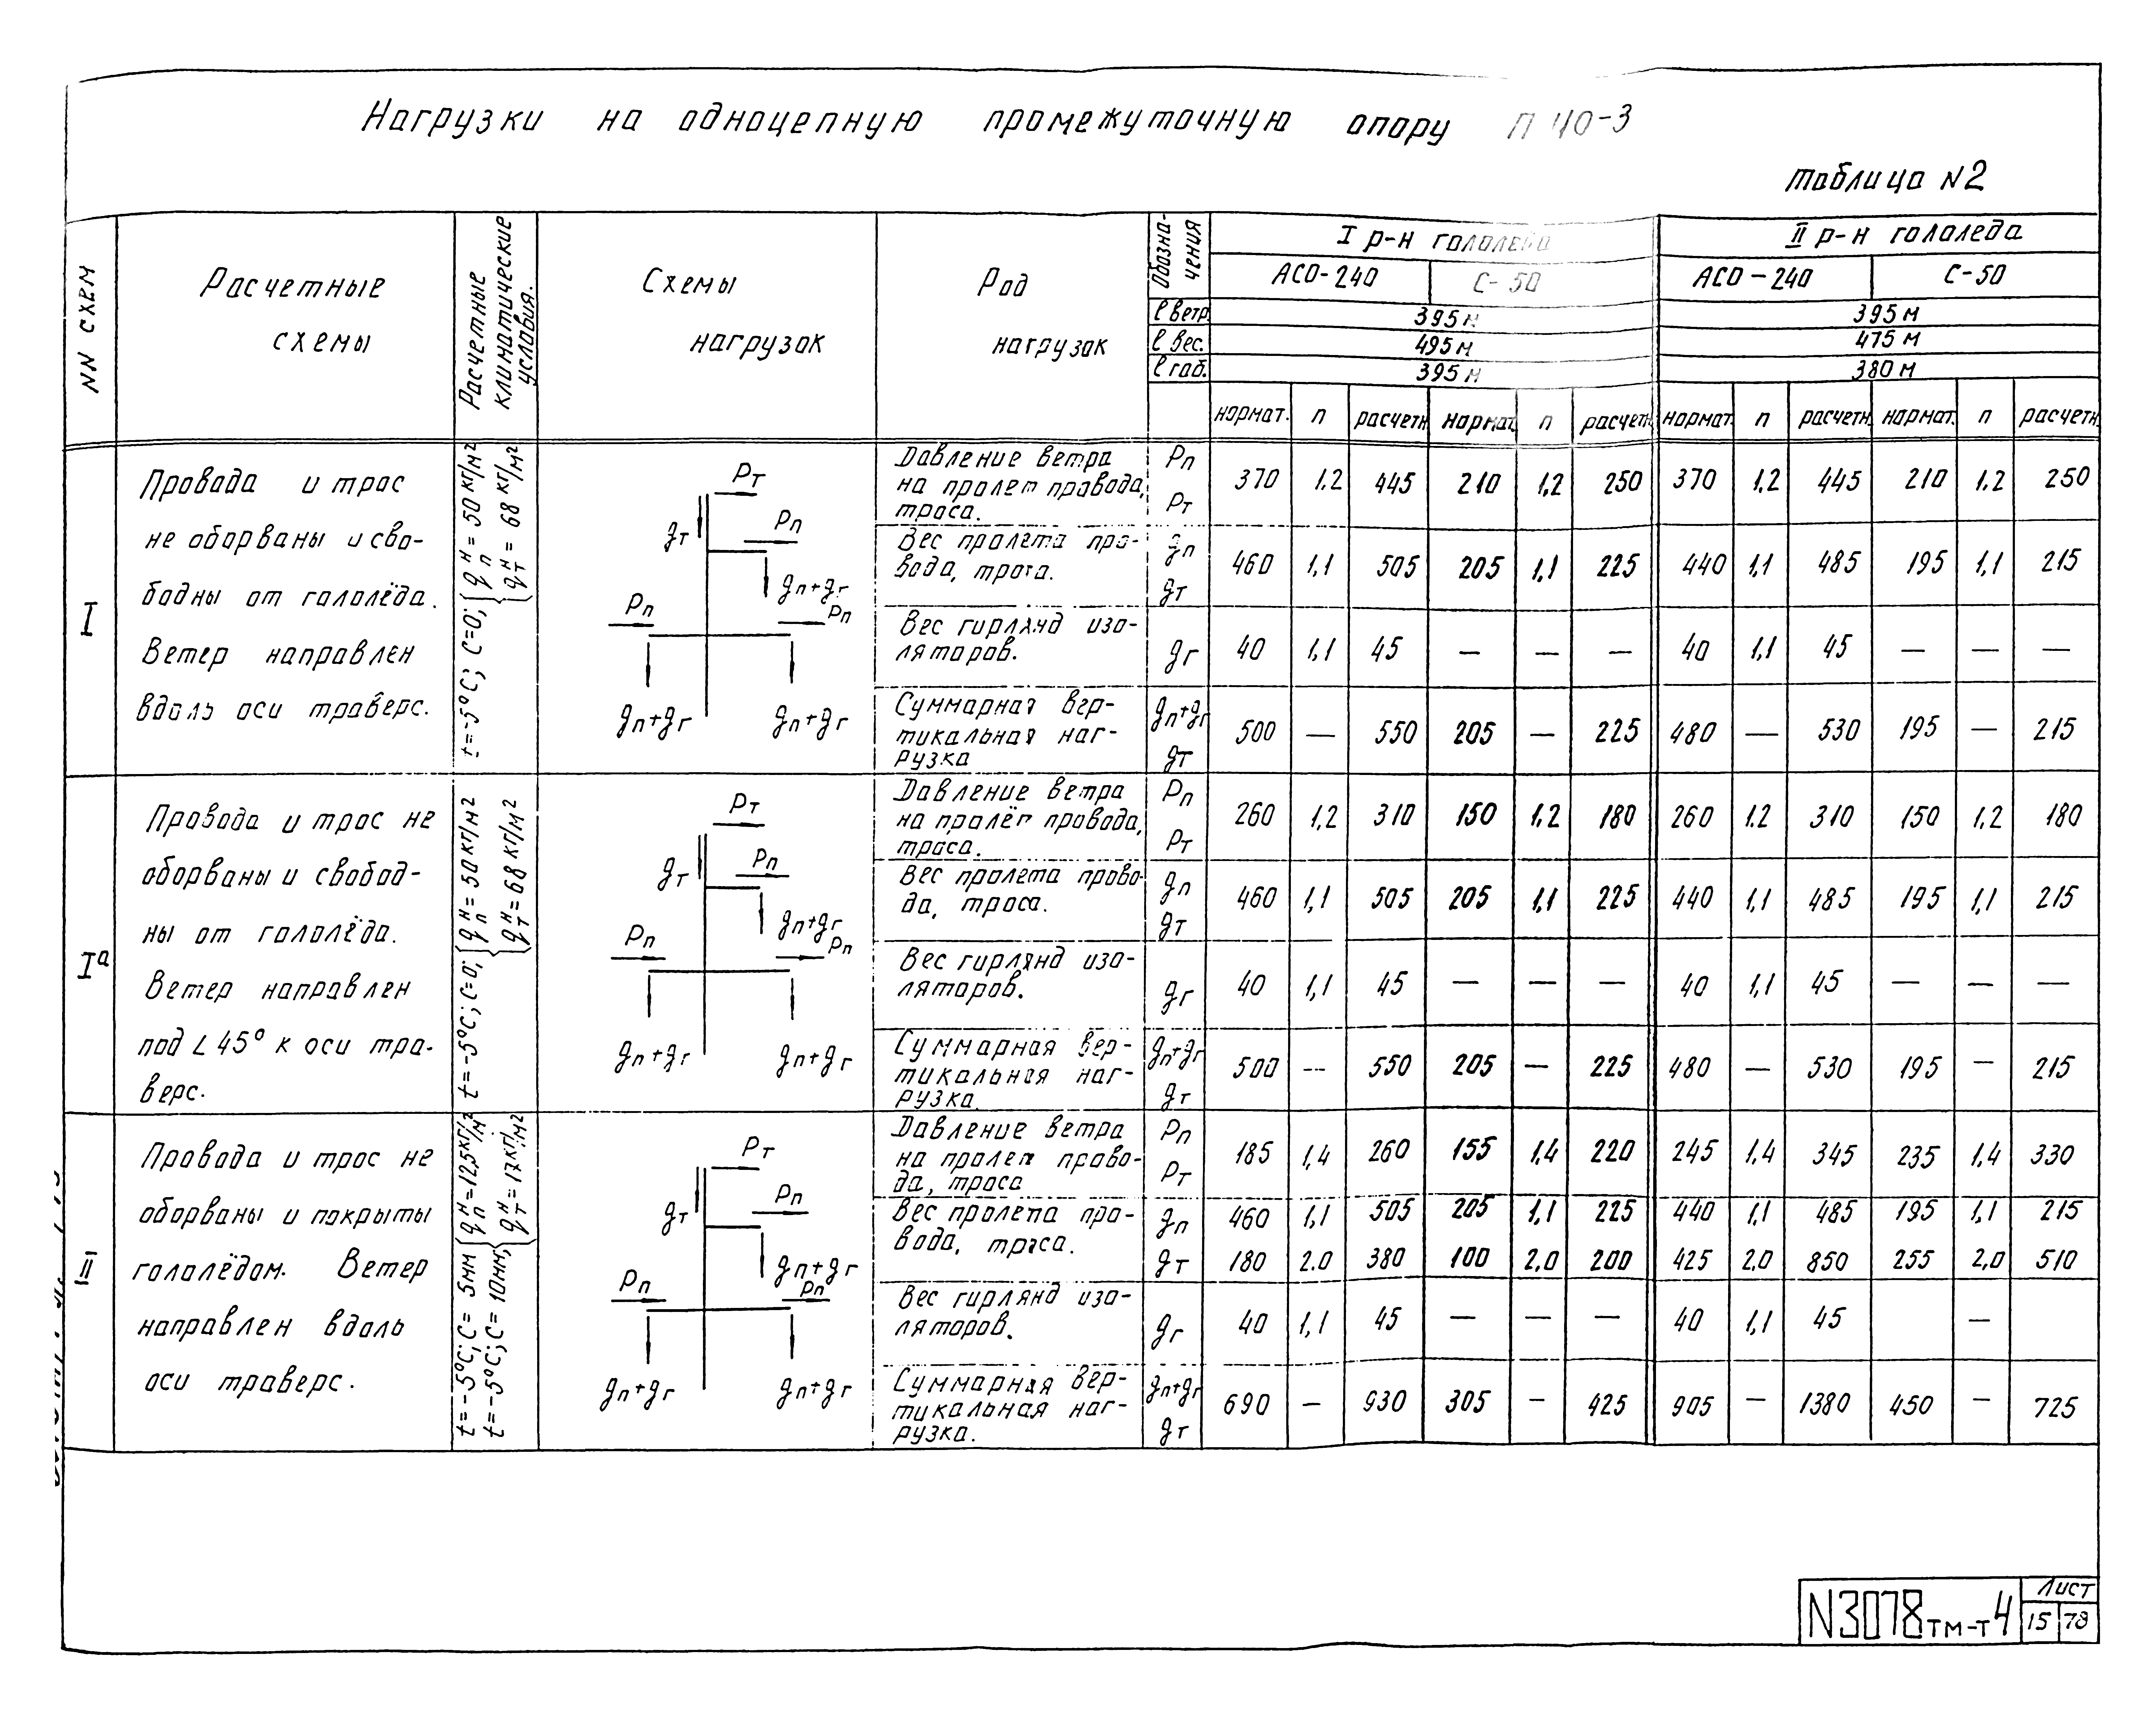 Нагрузки на одноцепную промежуточную опору П 110-3
таблица N2
NN схем
Расчетные схемы
Расчетные климатические условия.
Схемы нагрузок
Род нагрузок
Обозна-чения
I р-н гололеда
II р-н гололеда
АСО-240 С-50 АСО-240 С-50
l ветр. 395м 395м
l вес. 495м 475м
l габ. 395м 380м
нормат. n расчетн нормат n расчетн нормат. n расчетн. нормат. n расчетн.
I
Провода и трос
не оборваны и сво-
бодны от гололёда.
Ветер направлен
вдоль оси траверс.
t=-5°C; C=0; { qпн = 50 кг/м²
qтн = 68 кг/м²
Pт
gт
Pп
gп+gг
Pп
Pп
gп+gг gп+gг
Давление ветра
на пролет провода,
троса.
Pп
Pт
370 1.2 445 210 1,2 250 370 1,2 445 210 1.2 250
Вес пролета про-
вода, троса.
gп
gт
460 1,1 505 205 1,1 225 440 1,1 485 195 1,1 215
Вес гирлянд изо-
ляторов.
gг
40 1,1 45 — — — 40 1,1 45 — — —
Суммарная вер-
тикальная наг-
рузка
gп+gг
gт
500 — 550 205 — 225 480 — 530 195 — 215
Iа
Провода и трос не
оборваны и свобод-
ны от гололёда.
Ветер направлен
под ∠45° к оси тра-
верс.
t=-5°C; C=0; { qпн = 50 кг/м²
qтн = 68 кг/м²
Pт
gт
Pп
gп+gг
Pп
Pп
gп+gг gп+gг
Давление ветра
на пролёт провода,
троса.
Pп
Pт
260 1,2 310 150 1,2 180 260 1.2 310 150 1,2 180
Вес пролета прово-
да, троса.
gп
gт
460 1,1 505 205 1,1 225 440 1,1 485 195 1,1 215
Вес гирлянд изо-
ляторов.
gг
40 1,1 45 — — — 40 1,1 45 — — —
Суммарная вер-
тикальная наг-
рузка.
gп+gг
gт
500 — 550 205 — 225 480 — 530 195 — 215
II
Провода и трос не
оборваны и покрыты
гололёдом. Ветер
направлен вдоль
оси траверс.
t=-5°C; C= 5мм { qпн = 12,5кг/м²
t=-5°C; C= 10мм; qтн = 17кг/м²
Pт
gт
Pп
gп+gг
Pп
Pп
gп+gг gп+gг
Давление ветра
на пролет прово-
да, троса
Pп
Pт
185 1,4 260 155 1,4 220 245 1,4 345 235 1,4 330
Вес пролета про-
вода, троса.
gп
460 1,1 505 205 1,1 225 440 1,1 485 195 1,1 215
gт
180 2.0 380 100 2,0 200 425 2,0 850 255 2,0 510
Вес гирлянд изо-
ляторов.
gг
40 1,1 45 — — — 40 1,1 45 —
Суммарная вер-
тикальная наг-
рузка.
gп+gг
gт
690 — 930 305 — 425 905 — 1380 450 — 725
N3078тм-т4
Лист
15 78